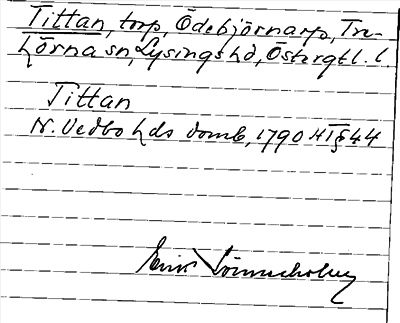 Tittan, torp, Ödebjörnarp, Tre-
hörna sn, Lysings hd, Östergtl. l.
Tittan
N. Vedbo hds domb, 1790 HT § 44
Erik